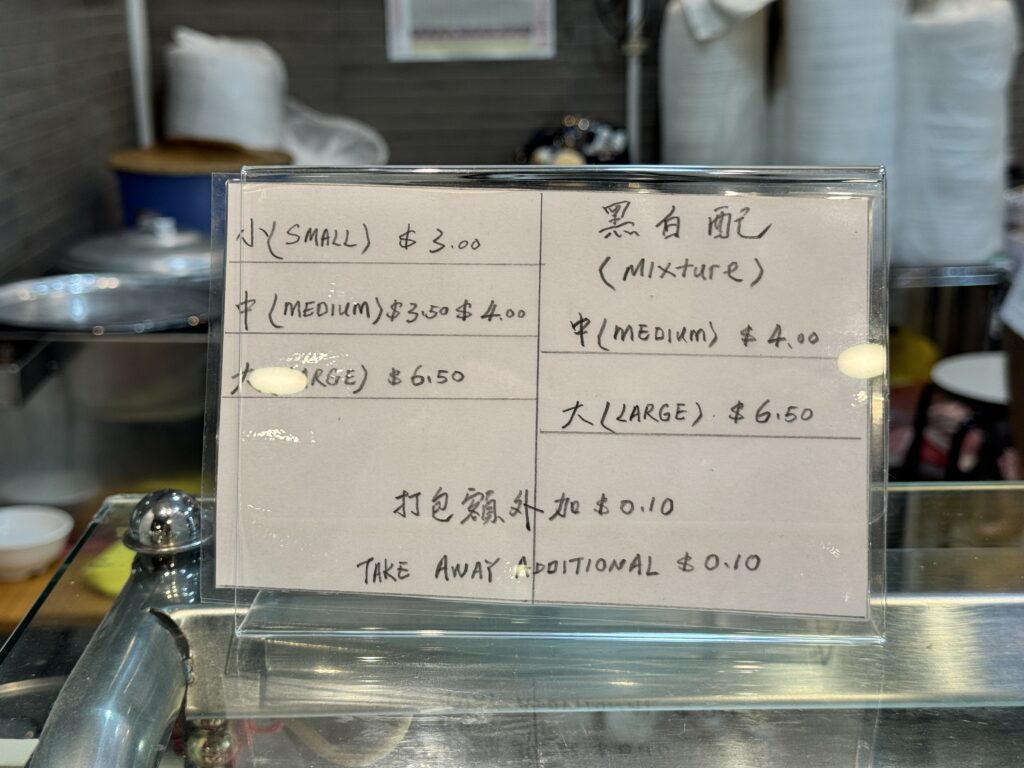 小(SMALL) $3.00
中(MEDIUM)$3.50 $4.00
大 ARGE) $6.50
黑白配
(Mixture)
中(MEDIUM) $4.00
大(LARGE). $6.50
打包額外加 $0.10
TAKE AWAY ADDITIONAL $0.10